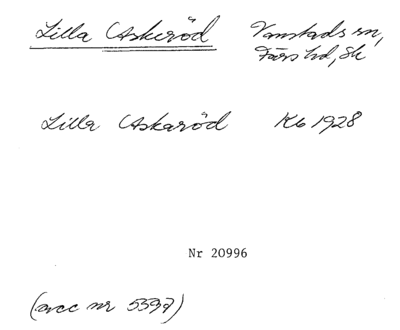 Lilla Askeröd Vanstads sn,
Färs hd, Sk
Lilla Askaröd Kb 1928
Nr 20996
(acc nr 5597)